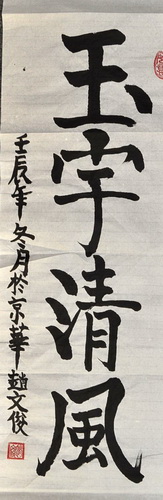 玉宇清風
壬辰年冬月於京華趙文俊